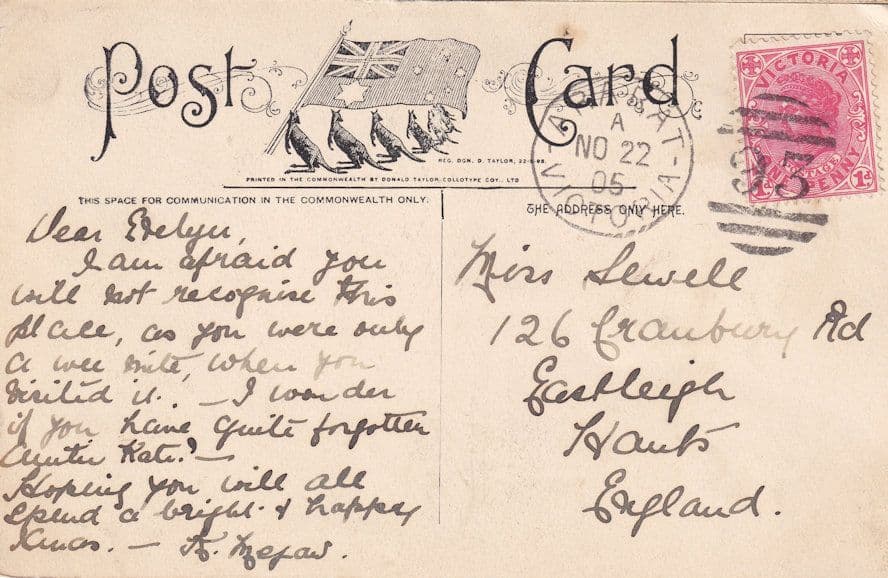 Post Card
REG. DGN. D. TAYLOR, 22-5-05.
PRINTED IN THE COMMONWEALTH BY DONALD TAYLOR COLLOTYPE COY. LTD
ARARAT
A
NO 22
05
VICTORIA
VICTORIA
POSTAGE
ONE PENNY
1d 1d
THIS SPACE FOR COMMUNICATION IN THE COMMONWEALTH ONLY.
THE ADDRESS ONLY HERE.
Dear Evelyn,
I am afraid you
will not recognise this
place, as you were only
a wee mite, when you
visited it. — I wonder
if you have quite forgotten
Auntie Kate? —
Hoping you will all
spend a bright & happy
Xmas. — K. Megaw.
Miss Sewell
126 Cranbury Rd
Eastleigh
Hants
England.